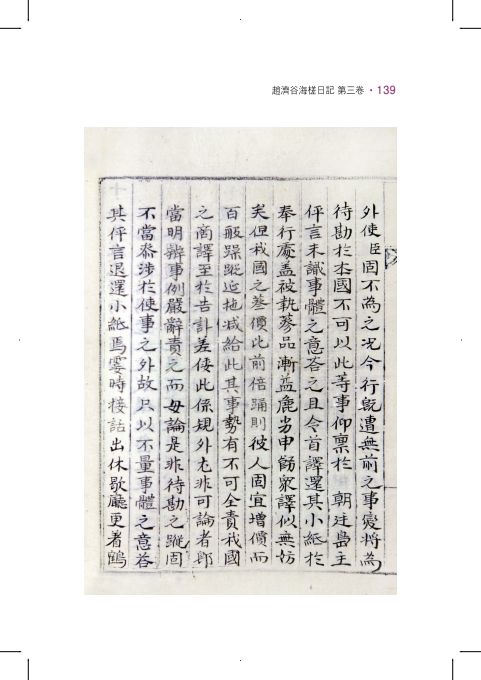 趙濟谷海槎日記 第三卷 · 139
外使臣固不為之况今行旣遭無前之事變將為
待勘於本國不可以此等事仰稟於 朝廷島主
伻言未識事體之意答之且令首譯還其小紙於
奉行處盖被執蔘品漸益麁劣申飭衆譯似無妨
矣但我國之蔘價比前倍踊則彼人固宜增價而
百般躁蹤近抱减給此其事勢有不可全責我國
之商譯至於告訃差倭此係規外尤非可論者那
當明辨事例嚴辭責之而毋論是非待勘之蹤固
不當叅涉於使事之外故只以不量事體之意答
其伻言退還小紙焉霎時接話出休歇廳更着鶴